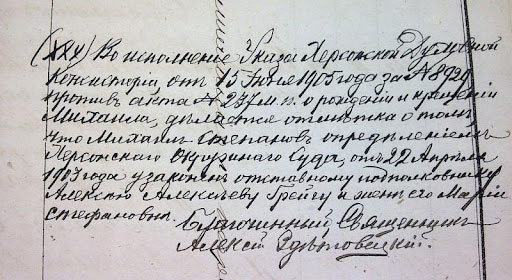 (XXV) Во исполненіе Указа Херсонской Духовной
Консисторіи, отъ 15 Іюня 1905 года за № 8929
противъ акта № 27 м. п. о рожденіи и крещеніи
Михаила, дѣлается отмѣтка о томъ
что Михаилъ Степановъ опредѣленіемъ
Херсонскаго Окружнаго Суда, отъ 22 Апрѣля
1903 года узаконенъ отставному подполковнику
Алексѣю Алексѣеву Грейгу и женѣ его Маріи
Стефановнѣ.
Благочинный Священникъ
Алексій